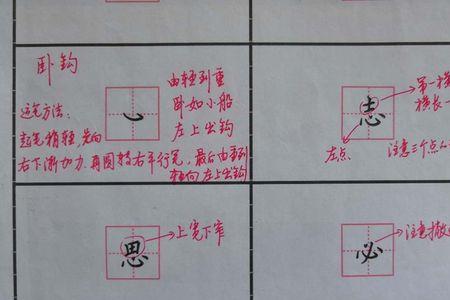 卧钩
由轻到重
卧如小船
左上出钩
运笔方法:
起笔稍轻,先向
右下渐加力,再圆转右平行笔,最后由重到
轻向左上出钩
志
第一横
横长一
左点
注意三个点
思
上宽下窄
必
注意撇